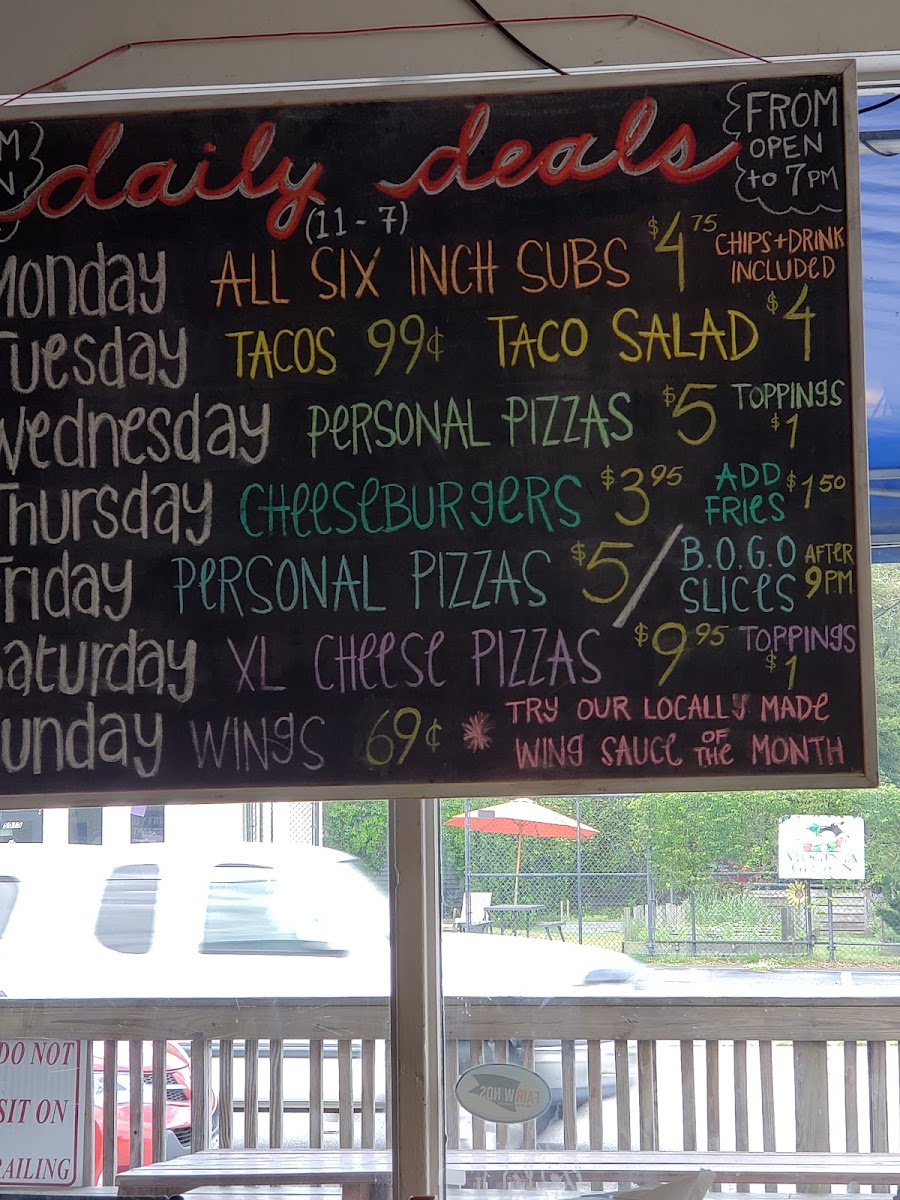 daily deals
(11 - 7)
FROM
OPEN
to 7PM
Monday ALL SIX INCH SUBS $4.75 CHIPS+DRINK INCLUDED
Tuesday TACOS 99¢ TACO SALAD $4
Wednesday PERSONAL PIZZAS $5 TOPPINGS $1
Thursday CHEESEBURGERS $3.95 ADD FRIES $1.50
Friday PERSONAL PIZZAS $5 / B.O.G.O SLICES AFTER 9PM
Saturday XL CHEESE PIZZAS $9.95 TOPPINGS $1
Sunday WINGS 69¢ * TRY OUR LOCALLY MADE
WING SAUCE OF THE MONTH
DO NOT
SIT ON
RAILING
FAIRWINDS